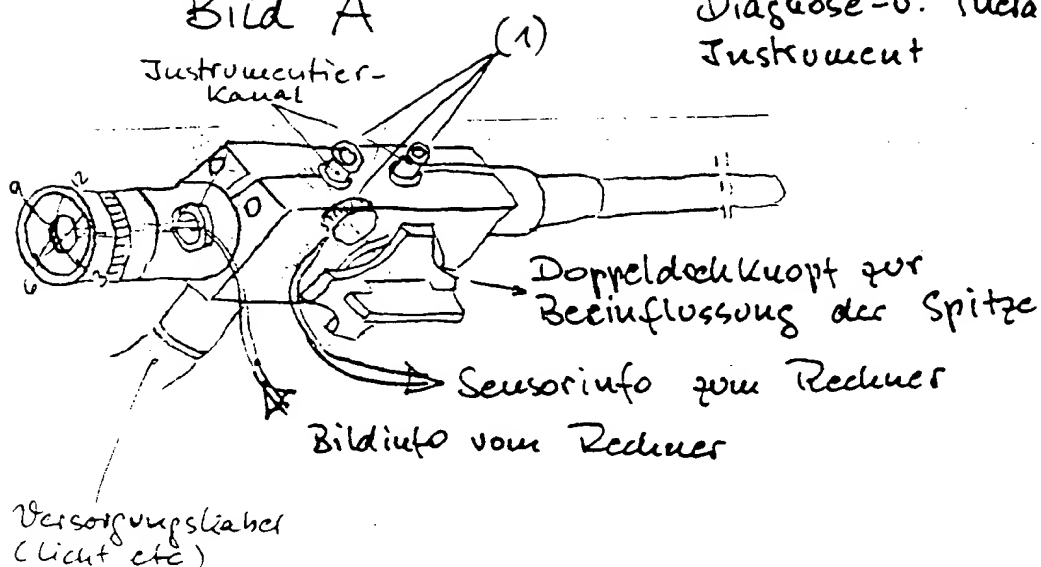 Bild A
Diagnose- u.
Instrument
(1)
Instrumentier-
Kanal
9
12
6
3
Doppeldrehknopf zur
Beeinflussung der Spitze
Sensorinfo zum Rechner
Bildinfo vom Rechner
Versorgungskabel
(Licht etc)